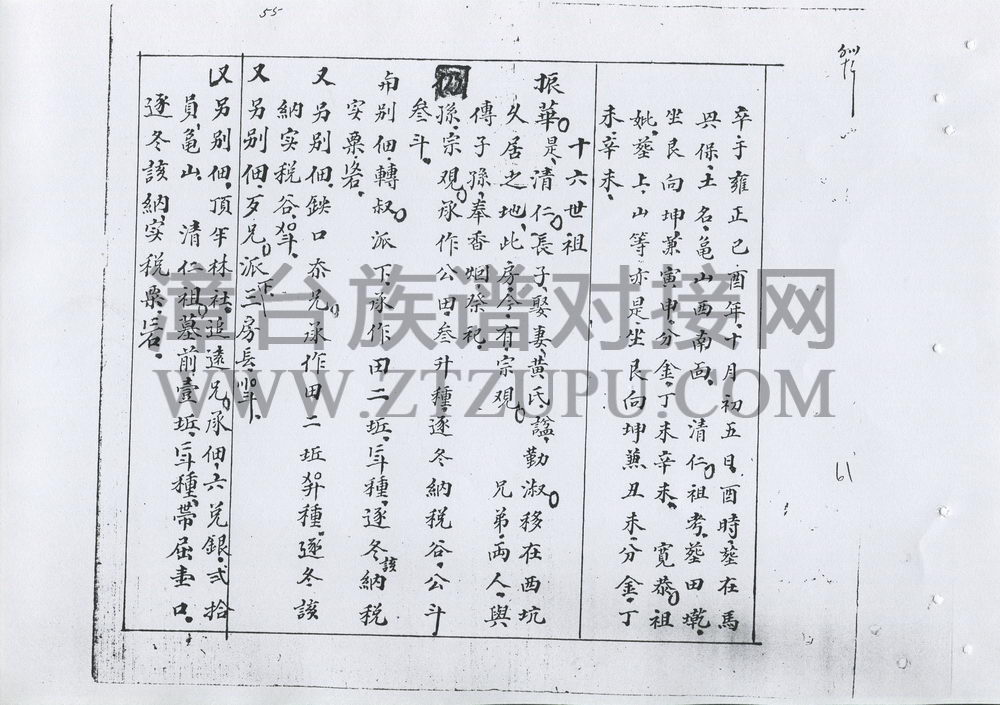 55
卒于雍正己酉年、十月初五日酉時、葬在馬
興保、土名、龜山西南面、清仁祖考、葬田墘、
坐艮向坤、兼寅申、分金、丁未辛未、寬恭祖
妣、葬上山等亦是、坐艮向坤兼丑未、分金、丁
未、辛未、
十六世祖
振華、是清仁長子、娶妻、黃氏、謚、勤淑、移在西坑
久居之地、此房、今有宗观、兄弟、両人、與
傳子孫、奉香烟祭祀、
孫、宗观、承作公田、叁升種、逐冬納税谷、公斗
叁斗、
别佃、轉叔、派下、承作田二坵、種、逐冬該納税
实粟、
又另别佃、口夵兄、承作田二坵、種、逐冬該
納实税谷、
又另别佃、歹兄、派下三房長、
又另别佃、頂林社、追遠兄、承佃、六兑銀、弍拾
員、龜山、清仁祖、墓前、壹坵、種、帶屈壹口、
逐冬該納、实税粟、
61
漳台族谱对接网
WWW.ZTZUPU.COM